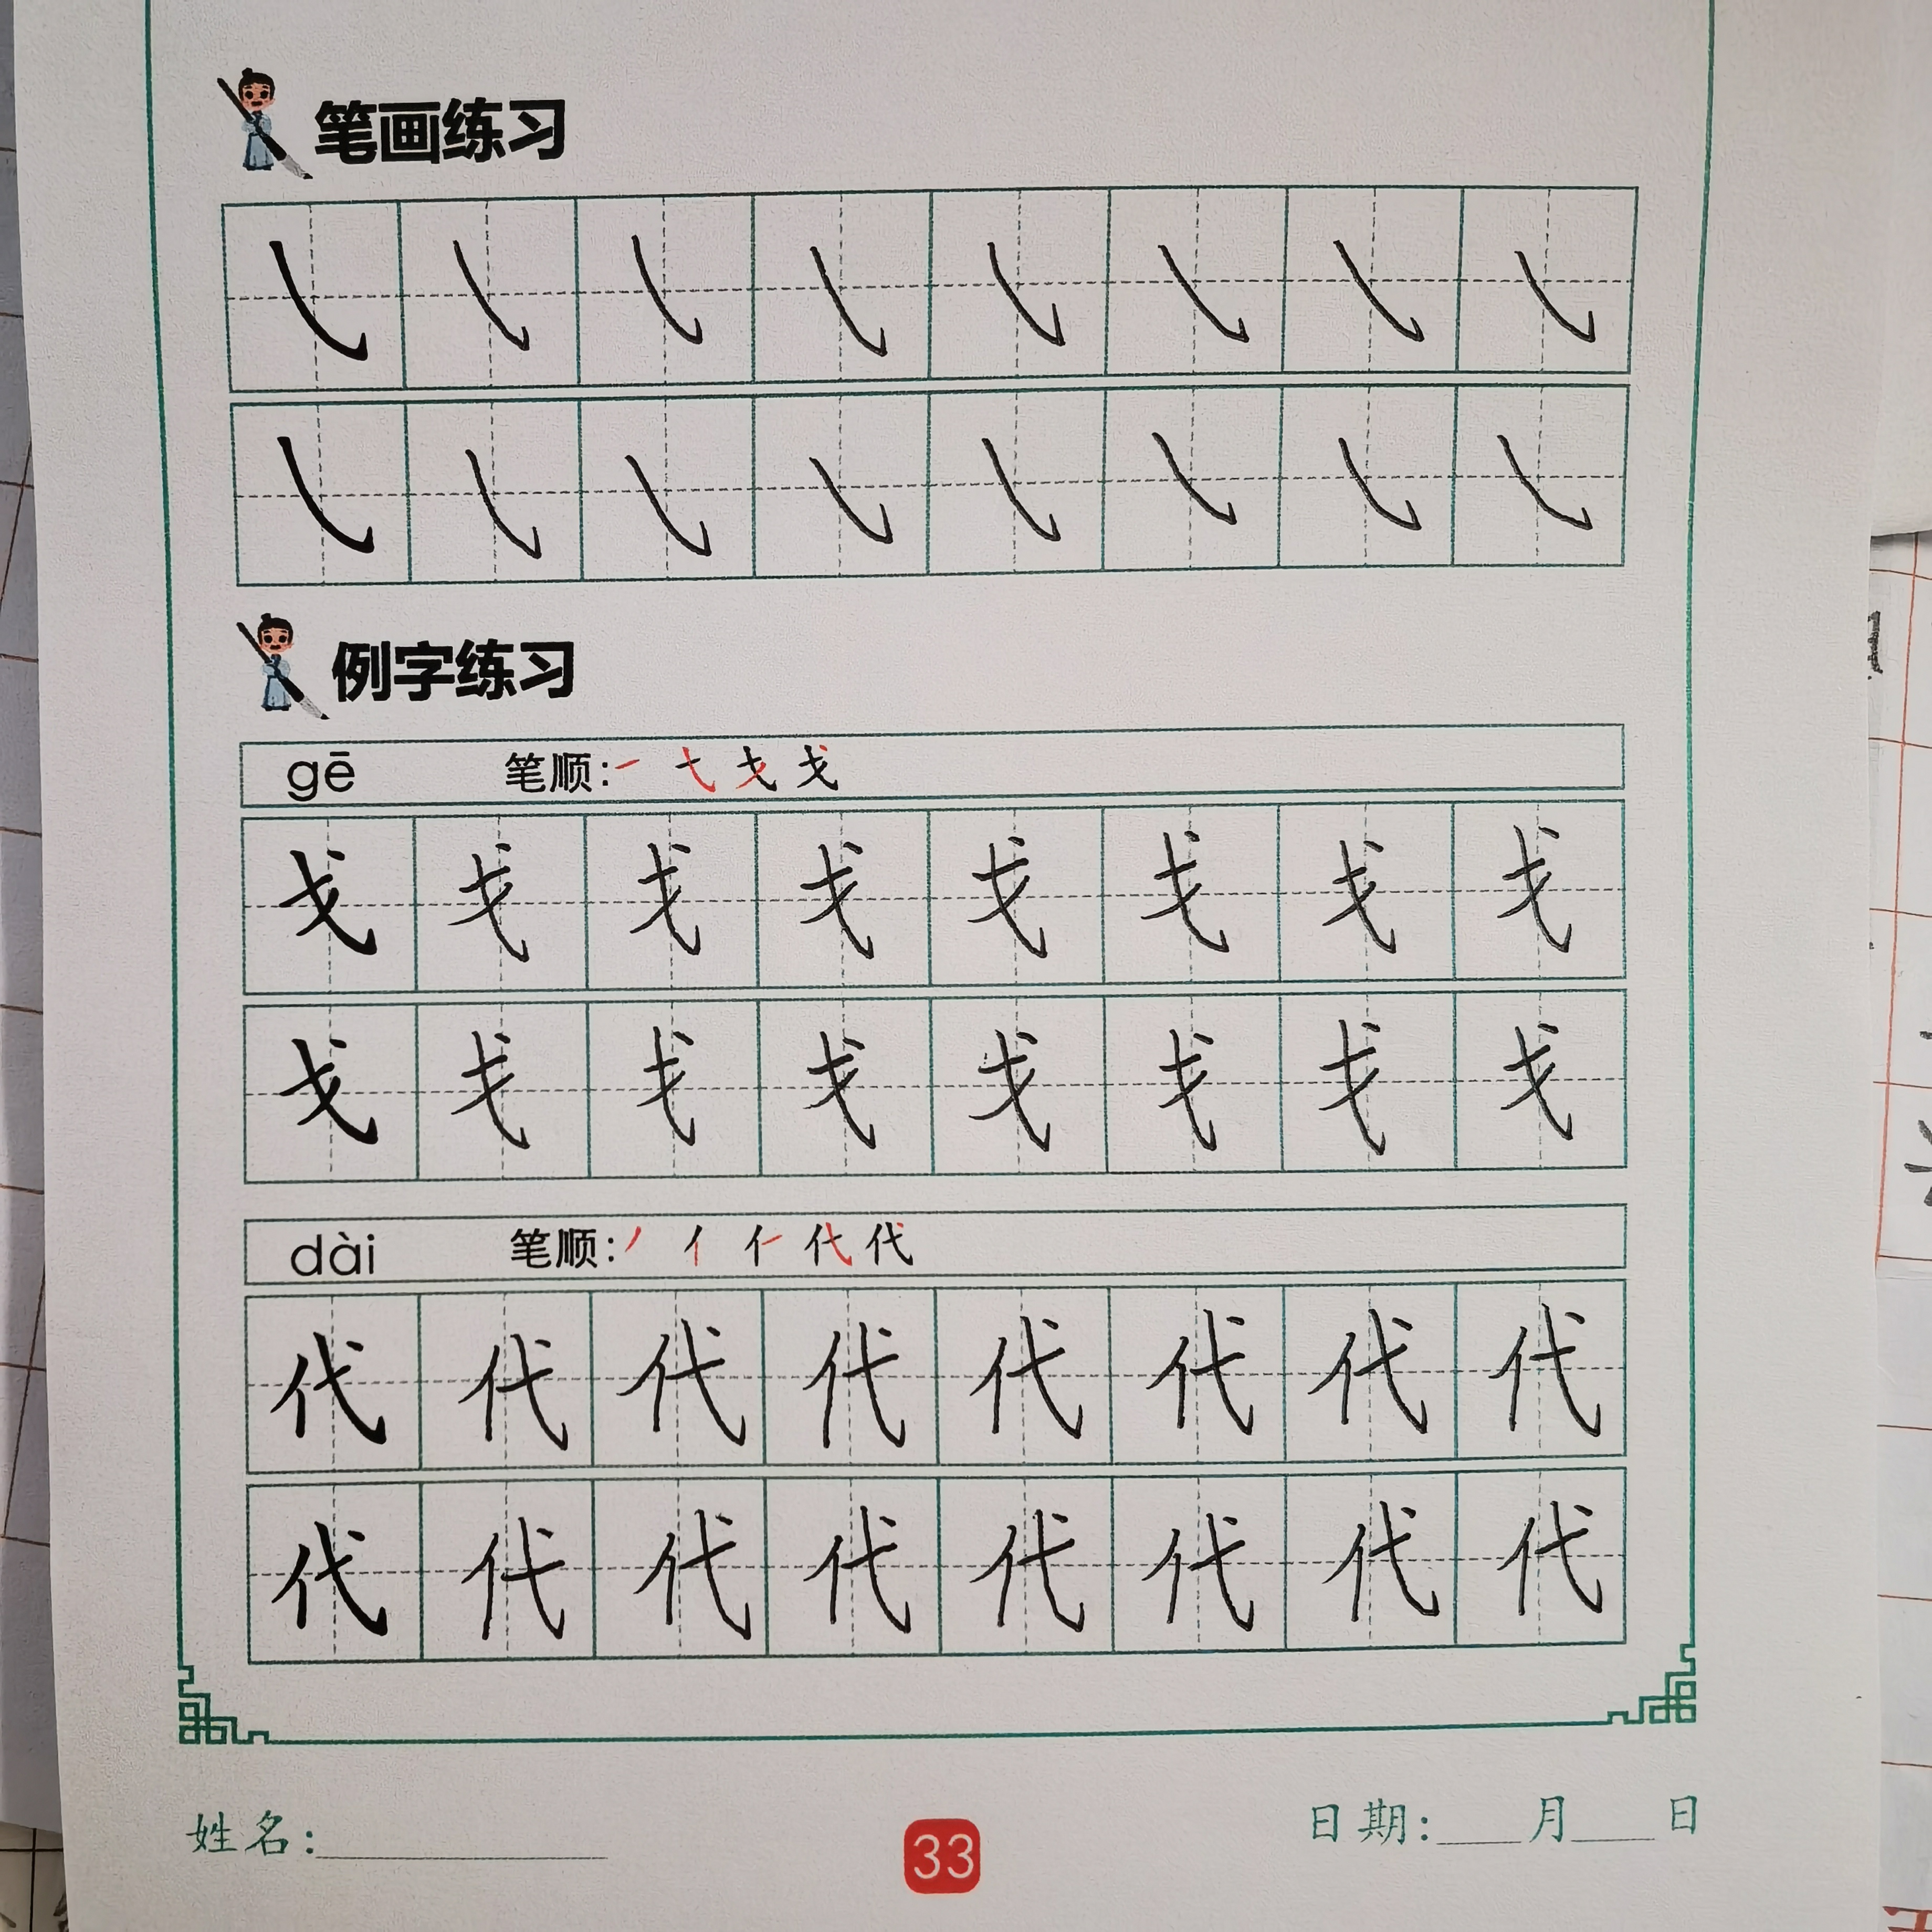 笔画练习
㇂ ㇂ ㇂ ㇂ ㇂ ㇂ ㇂ ㇂
㇂ ㇂ ㇂ ㇂ ㇂ ㇂ ㇂ ㇂
例字练习
gē 笔顺:一 弋 戈 戈
戈 戈 戈 戈 戈 戈 戈 戈
戈 戈 戈 戈 戈 戈 戈 戈
dài 笔顺:丿 亻 仁 代 代
代 代 代 代 代 代 代 代
代 代 代 代 代 代 代 代
姓名:____________ 33 日期:____月____日